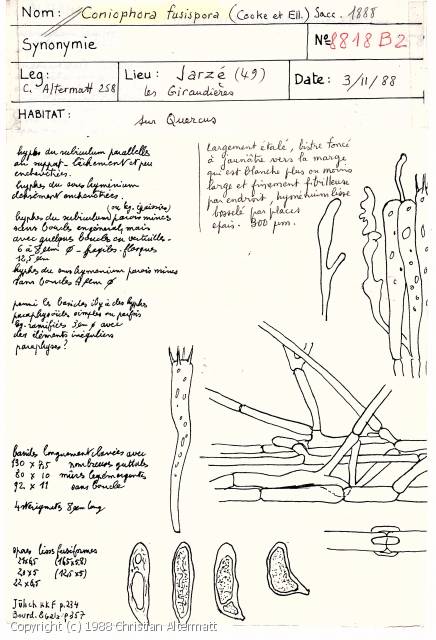 Nom: Coniophora fusispora (Cooke et Ell.) Sacc. 1888
Synonymie
No 8818 B2
Leg: C. Altermatt 258
Lieu: Jarzé (49)
les Giraudières
Date: 3/11/88
HABITAT:
sur Quercus
hyphes du subiculum parallelles
au support - lâchement et peu
enchevêtrées.
hyphes du sous hyménium
densément enchevêtrées.
(ou lég. épaissies)
hyphes du subiculum parois minces
sans boucles en général, mais
avec quelques boucles en verticilles -
6 à 8 µm Ø - fragiles - flasques
12,5 µm
hyphes du sous hymenium parois minces
sans boucles 4 µm Ø
parmi les basides il y a des hyphes
paraphysoïdes simples ou parfois
lég. ramifiées 3 µm Ø avec
des éléments irréguliers
paraphyses?
largement étalé, bistre foncé
à jaunâtre vers la marge
qui est blanche plus ou moins
large et finement fibrilleuse
par endroit, hyménium lisse
bosselé par places
epais. 300 µm.
basides longuement clavées avec
130 x 7,5 nombreuses guttules
80 x 10
92 x 11 sans boucle
4 stérigmates 8 µm long
spores lisses fusiformes
21 x 6,5
20 x 5 (12,5 x 5)
22 x 6,5
Jülich KKF p. 234
Bourd. & Galz. p 357
Copyright (c) 1988 Christian Altermatt